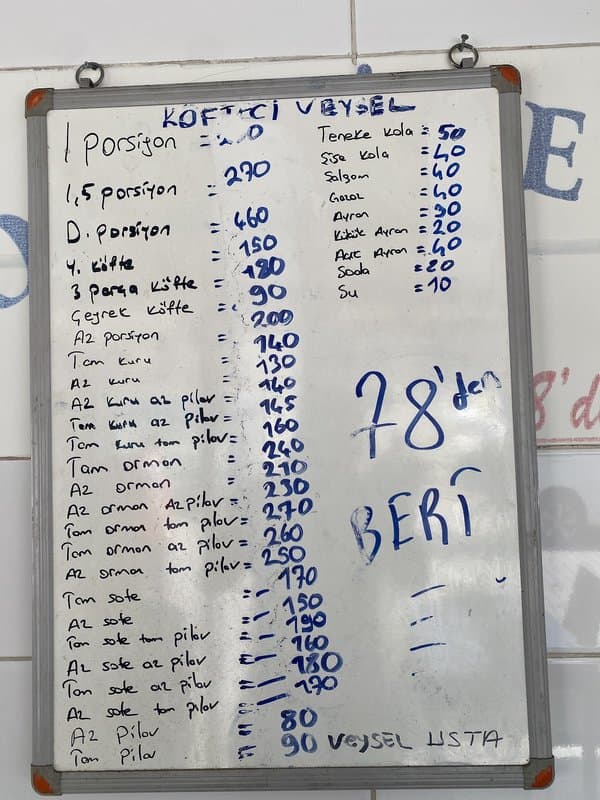 KÖFTECİ VEYSEL
1 Porsiyon =
1,5 porsiyon = 270
D. porsiyon = 460
Y. köfte = 150
3 parça köfte = 180
Çeyrek köfte = 90
Az porsiyon = 200
Tam kuru = 140
Az kuru = 130
Az kuru az pilav = 140
Tam kuru az pilav = 145
Tam kuru tam pilav = 160
Tam orman = 240
Az orman = 210
Az orman Az pilav = 230
Tam orman tam pilav = 270
Tam orman az pilav = 260
Az orman tam pilav = 250
Tam sote = 170
Az sote = 150
Tam sote tam pilav = 190
Az sote az pilav = 160
Tam sote az pilav = 180
Az sote tam pilav = 170
Az Pilav = 80
Tam Pilav = 90
Teneke kola = 50
Şişe kola = 40
Şalgam = 40
Gazoz = 40
Ayran = 30
Küçük Ayran = 20
Açık Ayran = 40
Soda = 20
Su = 10
78'den
BERİ
VEYSEL USTA